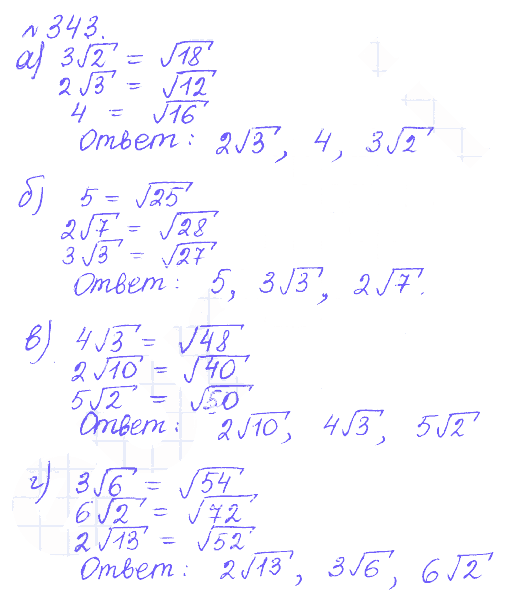 № 343.
а) 3√2 = √18
2√3 = √12
4 = √16
Ответ: 2√3, 4, 3√2
б) 5 = √25
2√7 = √28
3√3 = √27
Ответ: 5, 3√3, 2√7.
в) 4√3 = √48
2√10 = √40
5√2 = √50
Ответ: 2√10, 4√3, 5√2
г) 3√6 = √54
6√2 = √72
2√13 = √52
Ответ: 2√13, 3√6, 6√2